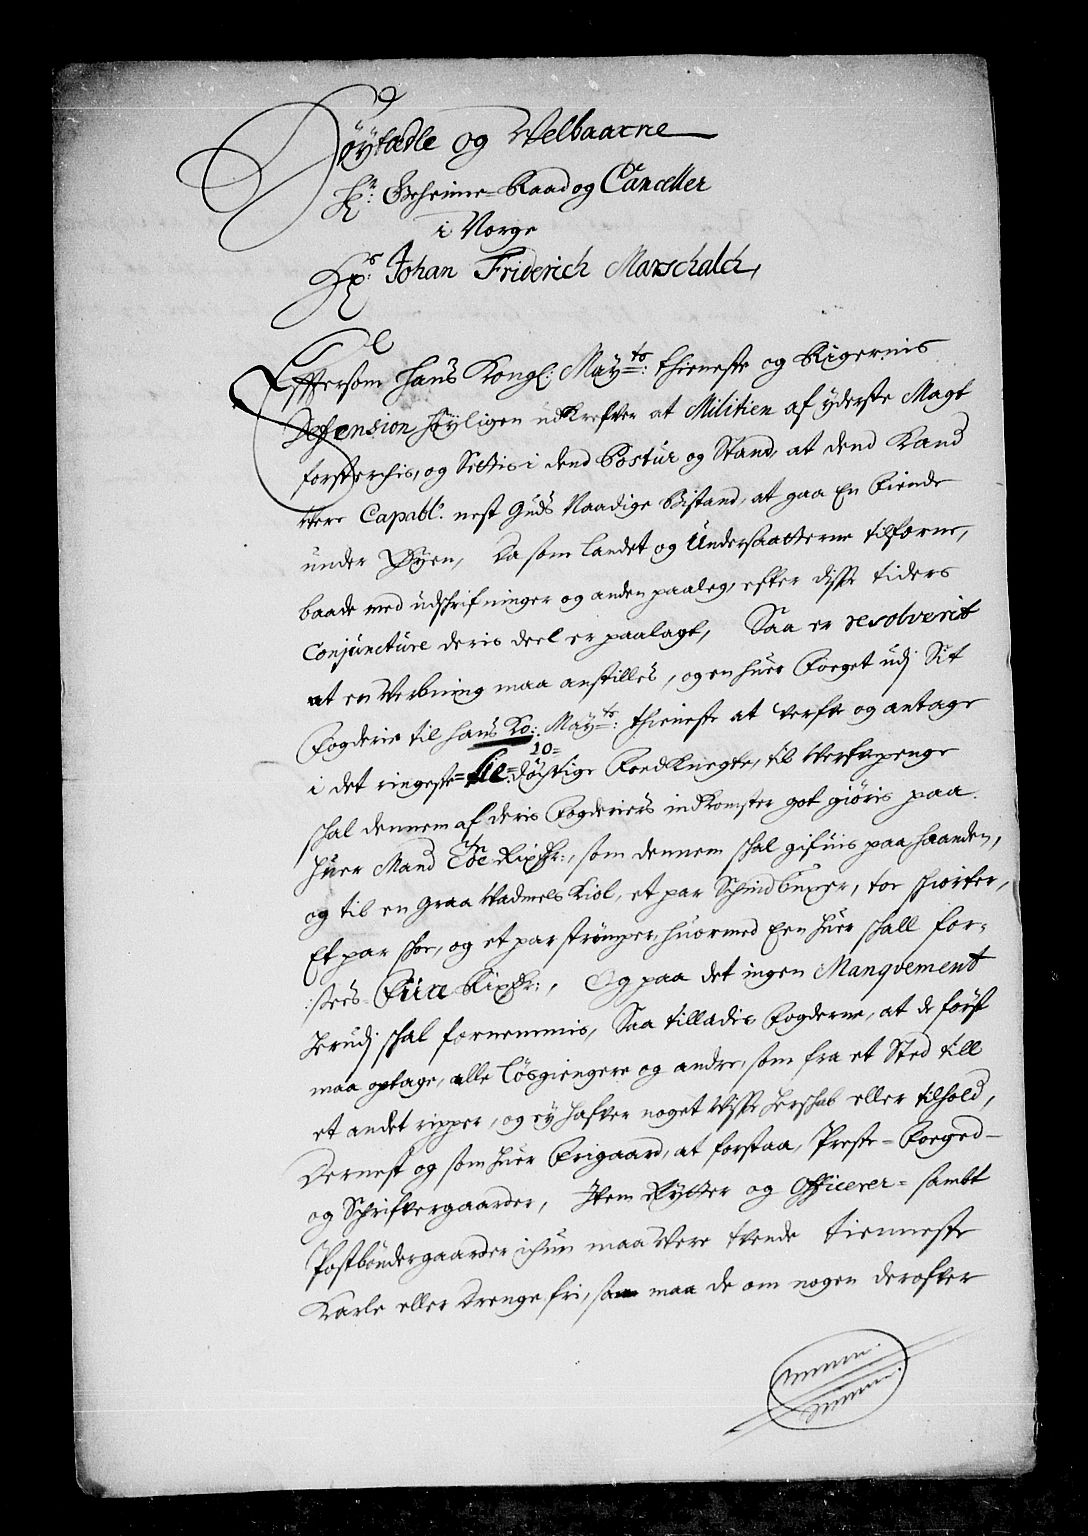 Høyædle og Velbaarne
Hr: Geheime-Raad og Canceller
i Norge
Hr: Johan Friderich Marschalch,
Effersom Hans Kongl: May:ts: thieneste og Rigernis
Defension høyligen udkrefver at Militien af yderste Magt
forsterchis, og Settis i dend Postur og Stand, at dend Kand
Vere Capabl: nest Guds Naadige Bistand, at gaa En Fiende
under Øyen, Da som Landet og Undersaatterne tilforne,
baade med udschrifninger og anden paaleg, efter disse tiders
Conjuncture deris deel er paalagt, Saa er resolverit
at en Verbning maa anstilles, og en huer Foeget udj Sit
Fogderie til hans Ko: May:ts: thieneste at Verfve og antage
i det ringeste = tie = døgtige Foedknegte, til Verfvepenge
10=
schal dennem af deris Fogderiers indKomster got giøris paa
huer Mand Rixdr:, som dennem schal gifuis paa haanden,
og til en graa Vadmels Kiol, et par Schindbuxer, toe schiorter,
Et par schoe, og et par strømper, huormed Een huer schall for-
:sees Fiire Rixdr:, Og paa det ingen Manqvement
herudj schal fornemmis, Saa tilladis Fogderne, at de først
maa optage, alle Løsgiengere og andre, som fra et Sted till
et andet ripper, og ey hafver noget Visse herschab eller tilhold,
Dernest og som huer Friigaard, at forstaa, Preste- Foeged-
og Schrifvergaarder, Item Rytter og Officerer= sambt
Postbøndergaarder ichun maa Vere tvende tienneste
Karle eller Drenge fri, saa maa de om nogen derofver